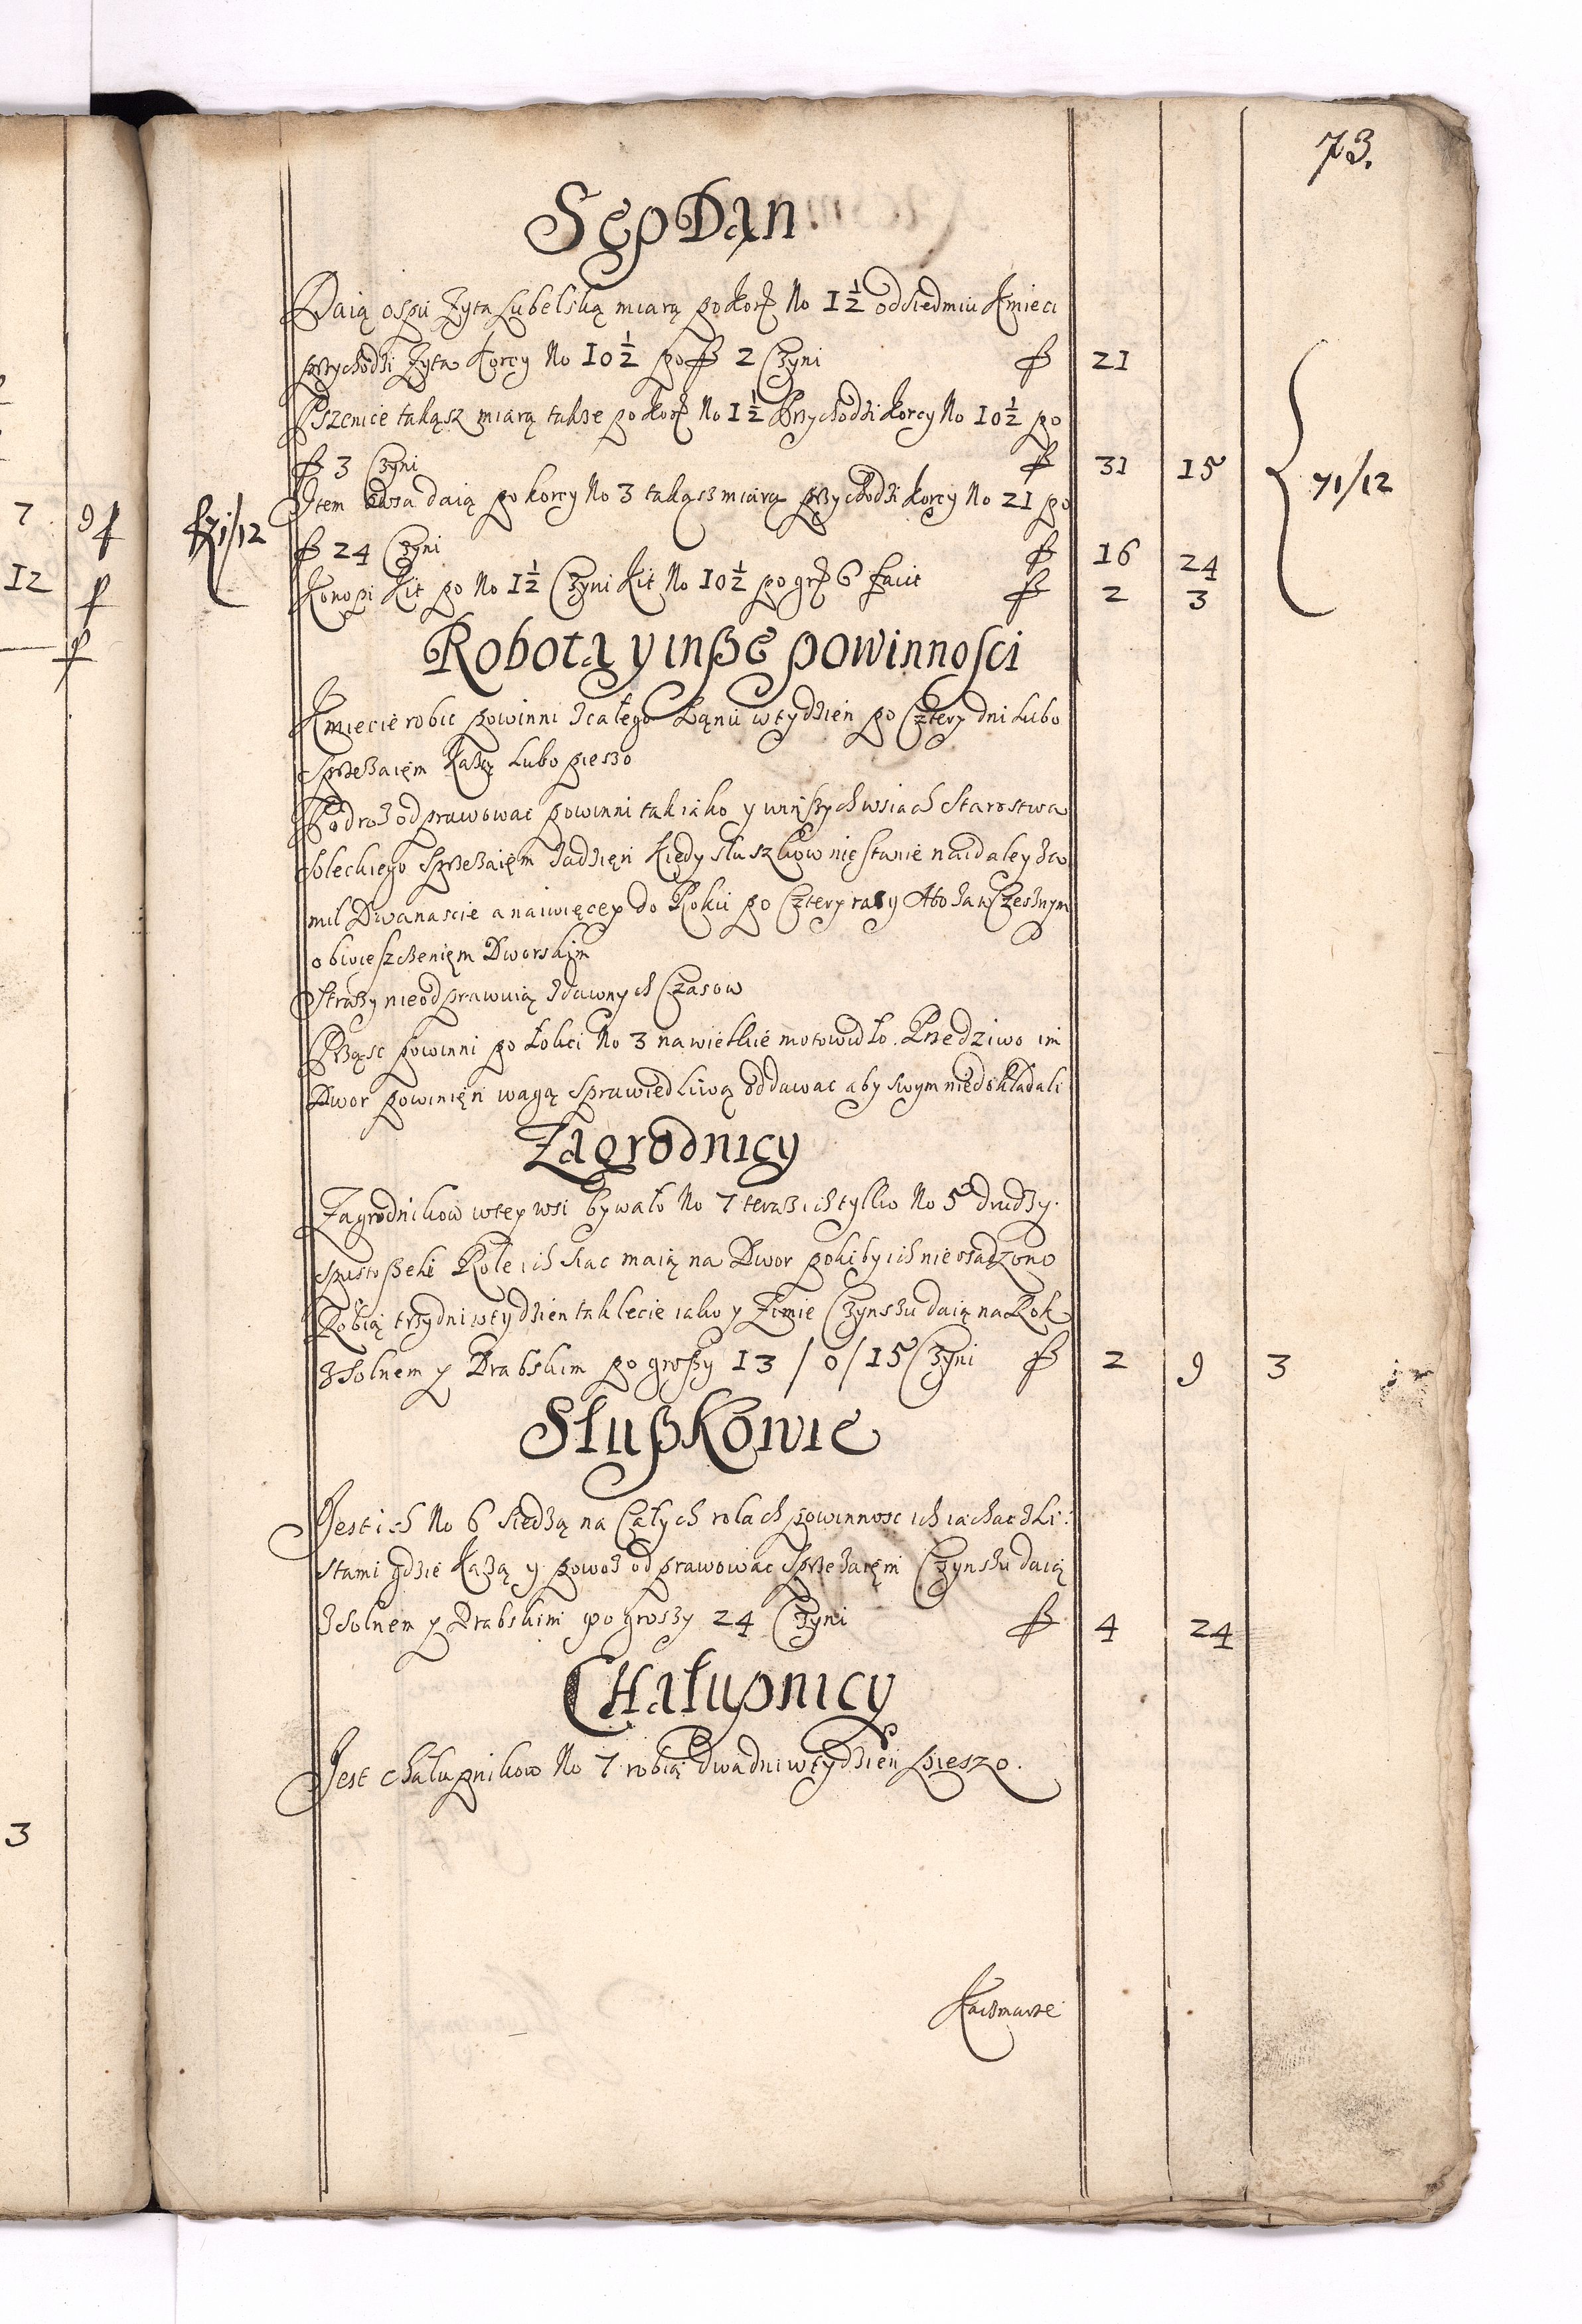 73.
Sęp Dań
Daią ospu Zyta Lubelską miarą po korz No 1½ od siedmiu Kmieci
przychodzi Zyta Korcy No 10½ po ƒ 2 Czyni ƒ 21
Pszenice takąsz miarą takze po korz No 1½ Przychodzi korcy No 10½ po
ƒ 3 Czyni ƒ 31 15
Item Owsa daią po korcy No 3 takąsz miarą przychodzi korcy No 21 po
ƒ 24 Czyni ƒ 16 24
Konopi Kit po No 1½ Czyni Kit No 10½ po grz 6 facit ƒ 2 3
71/12
ƒ 71/12
Robotą y inße powinnosci
Kmiecie robic powinni z całego Łąnu w tydzien po Cztery dni Lubo
sprzezaięm Kazą Lubo pieszo
Podroz odprawowac powinni tak iako y w inszych wsiach Starostwa
soleckiego Sprzezaięm Jadzięn Kiedy słuszkow nię stanie naidaley za
mil Dwanascie a naiwięcey do Roku po Cztery razy A to za w Czesznym
obwieszczenięm Dworskim
Strazy nieodprawuią z dawnych Czasow
Prząsc powinni po Łokci No 3 na wielkie motowidło. Przedziwo im
Dwor powinięn wagą sprawiedliwą oddawac aby swym niedokładali
Zagrodnicy
Zagrodnikow w tey wsi bywało No 7 teraz ich tylko No 5 drudzy
spustoßeli Role ich siac maią na Dwor poki by ich nie osadzono
Robią trzy dni w tydzien tak lecie iako y Zimie Czynszu daią na Rok
z Solnem y Drabskim po großy 13 / 0 / 15 Czyni ƒ 2 9 3
Słußkowie
Jest ich No 6 siedzą na Całych rolach powinnosc ich iachac z Li:
stami gdzie Kazą y powoz odprawowac Sprzezaięm Czynszu daią
z Solnem y Drabskim po groszy 24 Czyni ƒ 4 24
CHałupnicy
Jest chałupnikow No 7 robią dwa dni w tydzien pieszo.
Kaczmarze
7 9
12
3